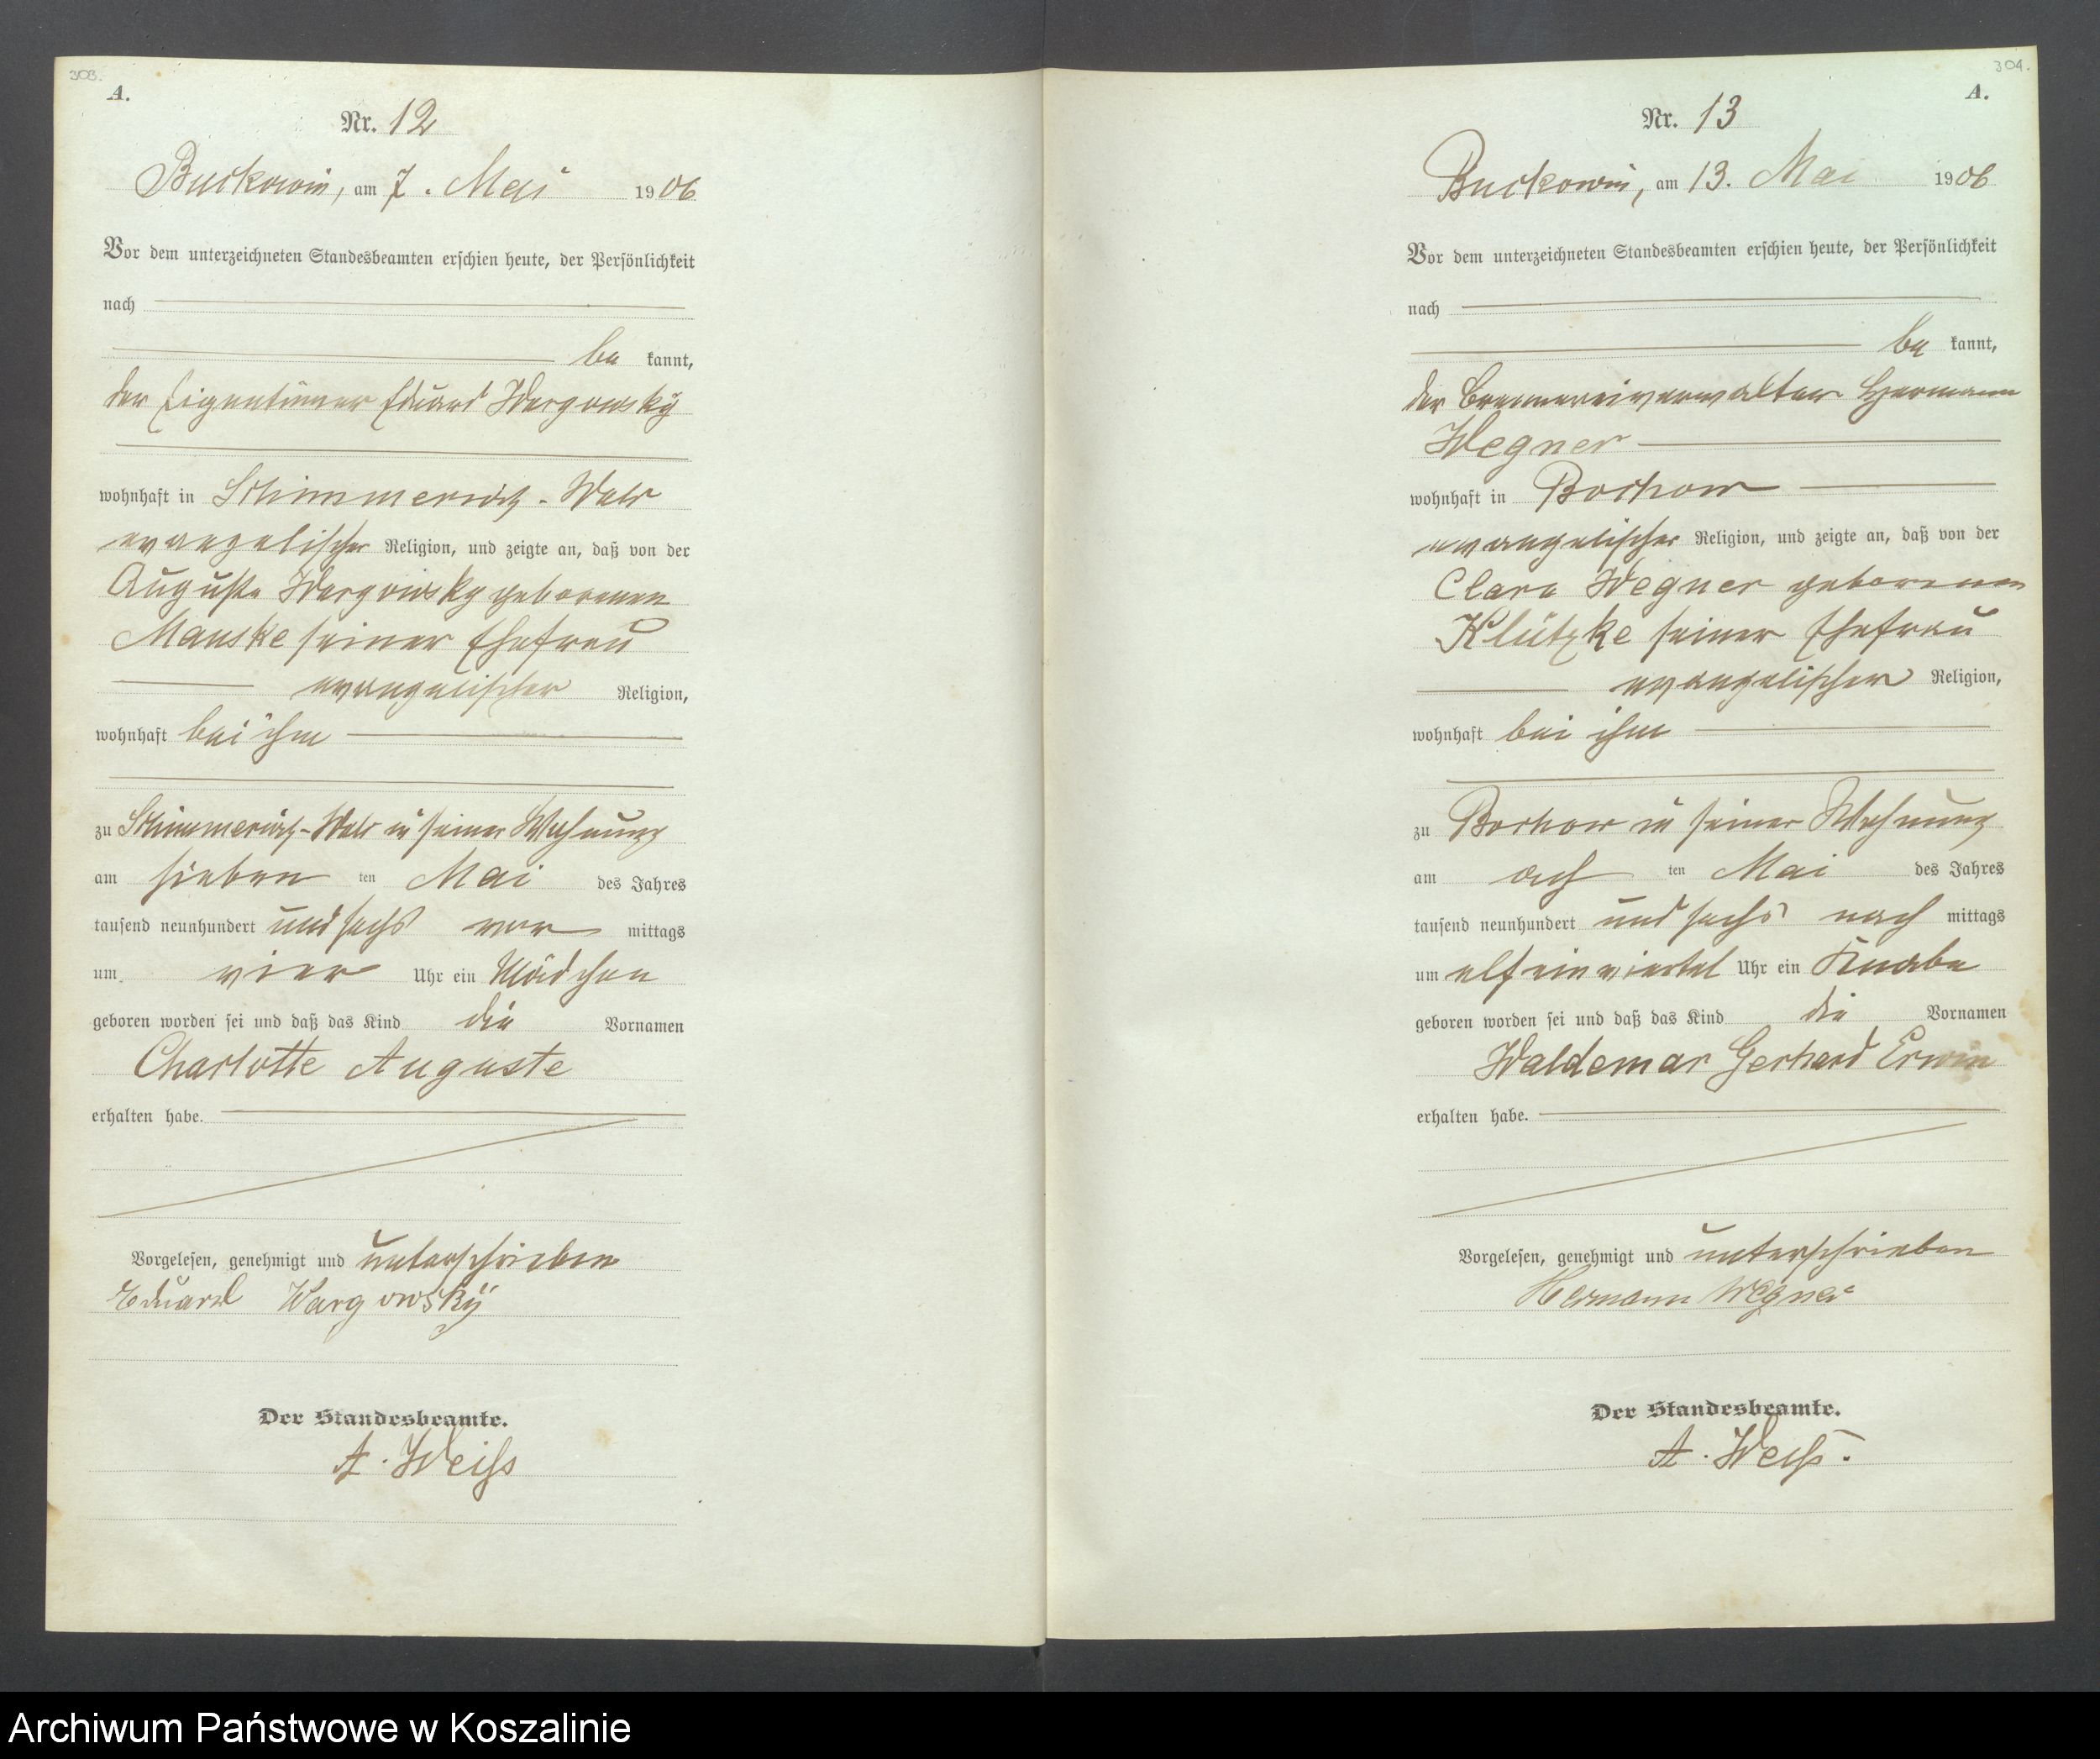 303.
A.
Nr. 12
Buckowin, am 7. Mai 1906
Vor dem unterzeichneten Standesbeamten erschien heute, der Persönlichkeit
nach
be kannt,
der Eigentümer Eduard Wargowsky
wohnhaft in Schimmerwitz-Wald
evangelischer Religion, und zeigte an, daß von der
Auguste Wargowsky geborenen
Manske seiner Ehefrau
evangelischer Religion,
wohnhaft bei ihm
zu Schimmerwitz-Wald in seiner Wohnung
am sieben ten Mai des Jahres
tausend neunhundert und sechs vor mittags
um vier Uhr ein Mädchen
geboren worden sei und daß das Kind die Vornamen
Charlotte Auguste
erhalten habe.
Vorgelesen, genehmigt und unterschrieben
Eduard Wargowsky
Der Standesbeamte.
A. Weiss
304.
A.
Nr. 13
Buckowin, am 13. Mai 1906
Vor dem unterzeichneten Standesbeamten erschien heute, der Persönlichkeit
nach
be kannt,
der Brennereiverwalter Hermann
Wegner
wohnhaft in Bochow
evangelischer Religion, und zeigte an, daß von der
Clara Wegner geborenen
Klützke seiner Ehefrau
evangelischer Religion,
wohnhaft bei ihm
zu Bochow in seiner Wohnung
am ach ten Mai des Jahres
tausend neunhundert und sechs nach mittags
um elf ein viertel Uhr ein Knabe
geboren worden sei und daß das Kind die Vornamen
Waldemar Gerhard Erwin
erhalten habe.
Vorgelesen, genehmigt und unterschrieben
Hermann Wegner
Der Standesbeamte.
A. Weiss.
Archiwum Państwowe w Koszalinie